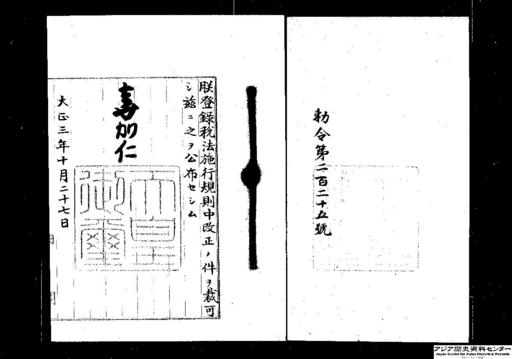 勅令第二百二十五號
朕登録税法施行規則中改正ノ件ヲ裁可
シ茲ニ之ヲ公布セシム
嘉仁
天皇御璽
大正三年十月二十七日
アジア歴史資料センター
Japan Center for Asian Historical Records